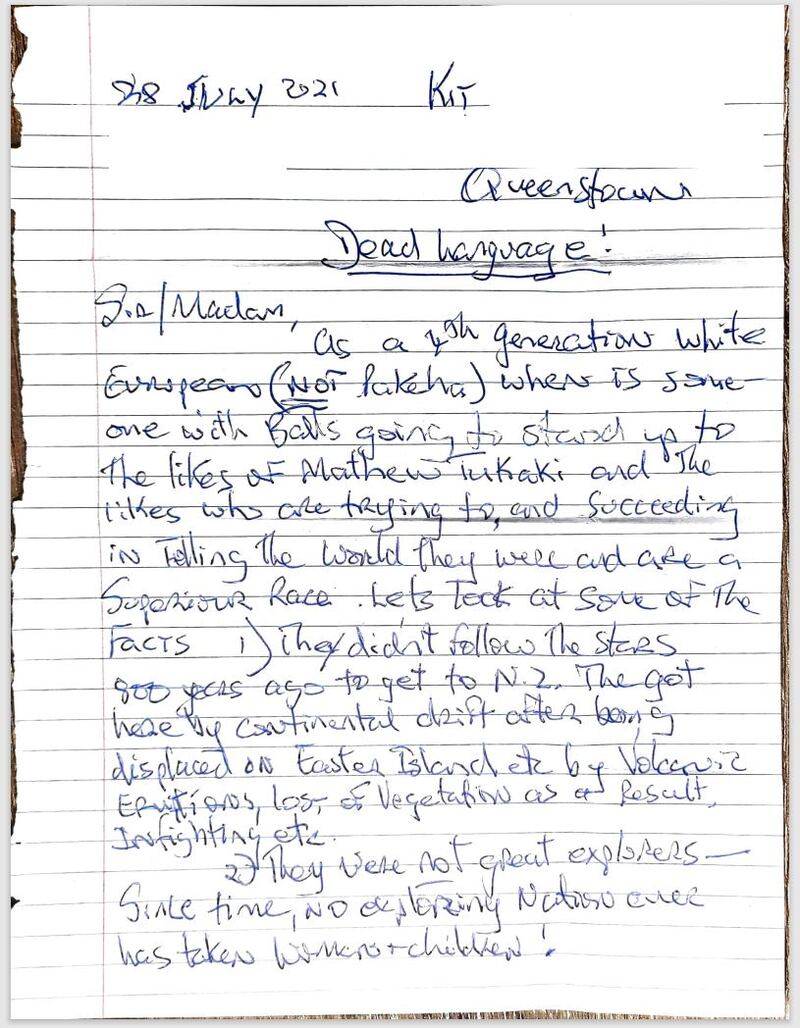 28 JULY 2021 KIT
Queenstown
Dead Language!
Sir/Madam,
As a 4th generation white
European (NOT Pakeha) when is some-
one with Balls going to stand up to
the likes of Mathew Tukaki and The
likes who are trying to, and Succeeding
in Telling The World they were and are a
Superiour Race. Lets look at some of The
FACTS 1) They didn't follow The Stars
800 years ago to get to N.Z. The got
here by continental drift after being
displaced on Easter Island etc by Volcanic
Eruptions, loss of Vegetation as a Result,
Infighting etc.
2) They were not great explorers —
Since time, no exploring Nation ever
has taken women + children!